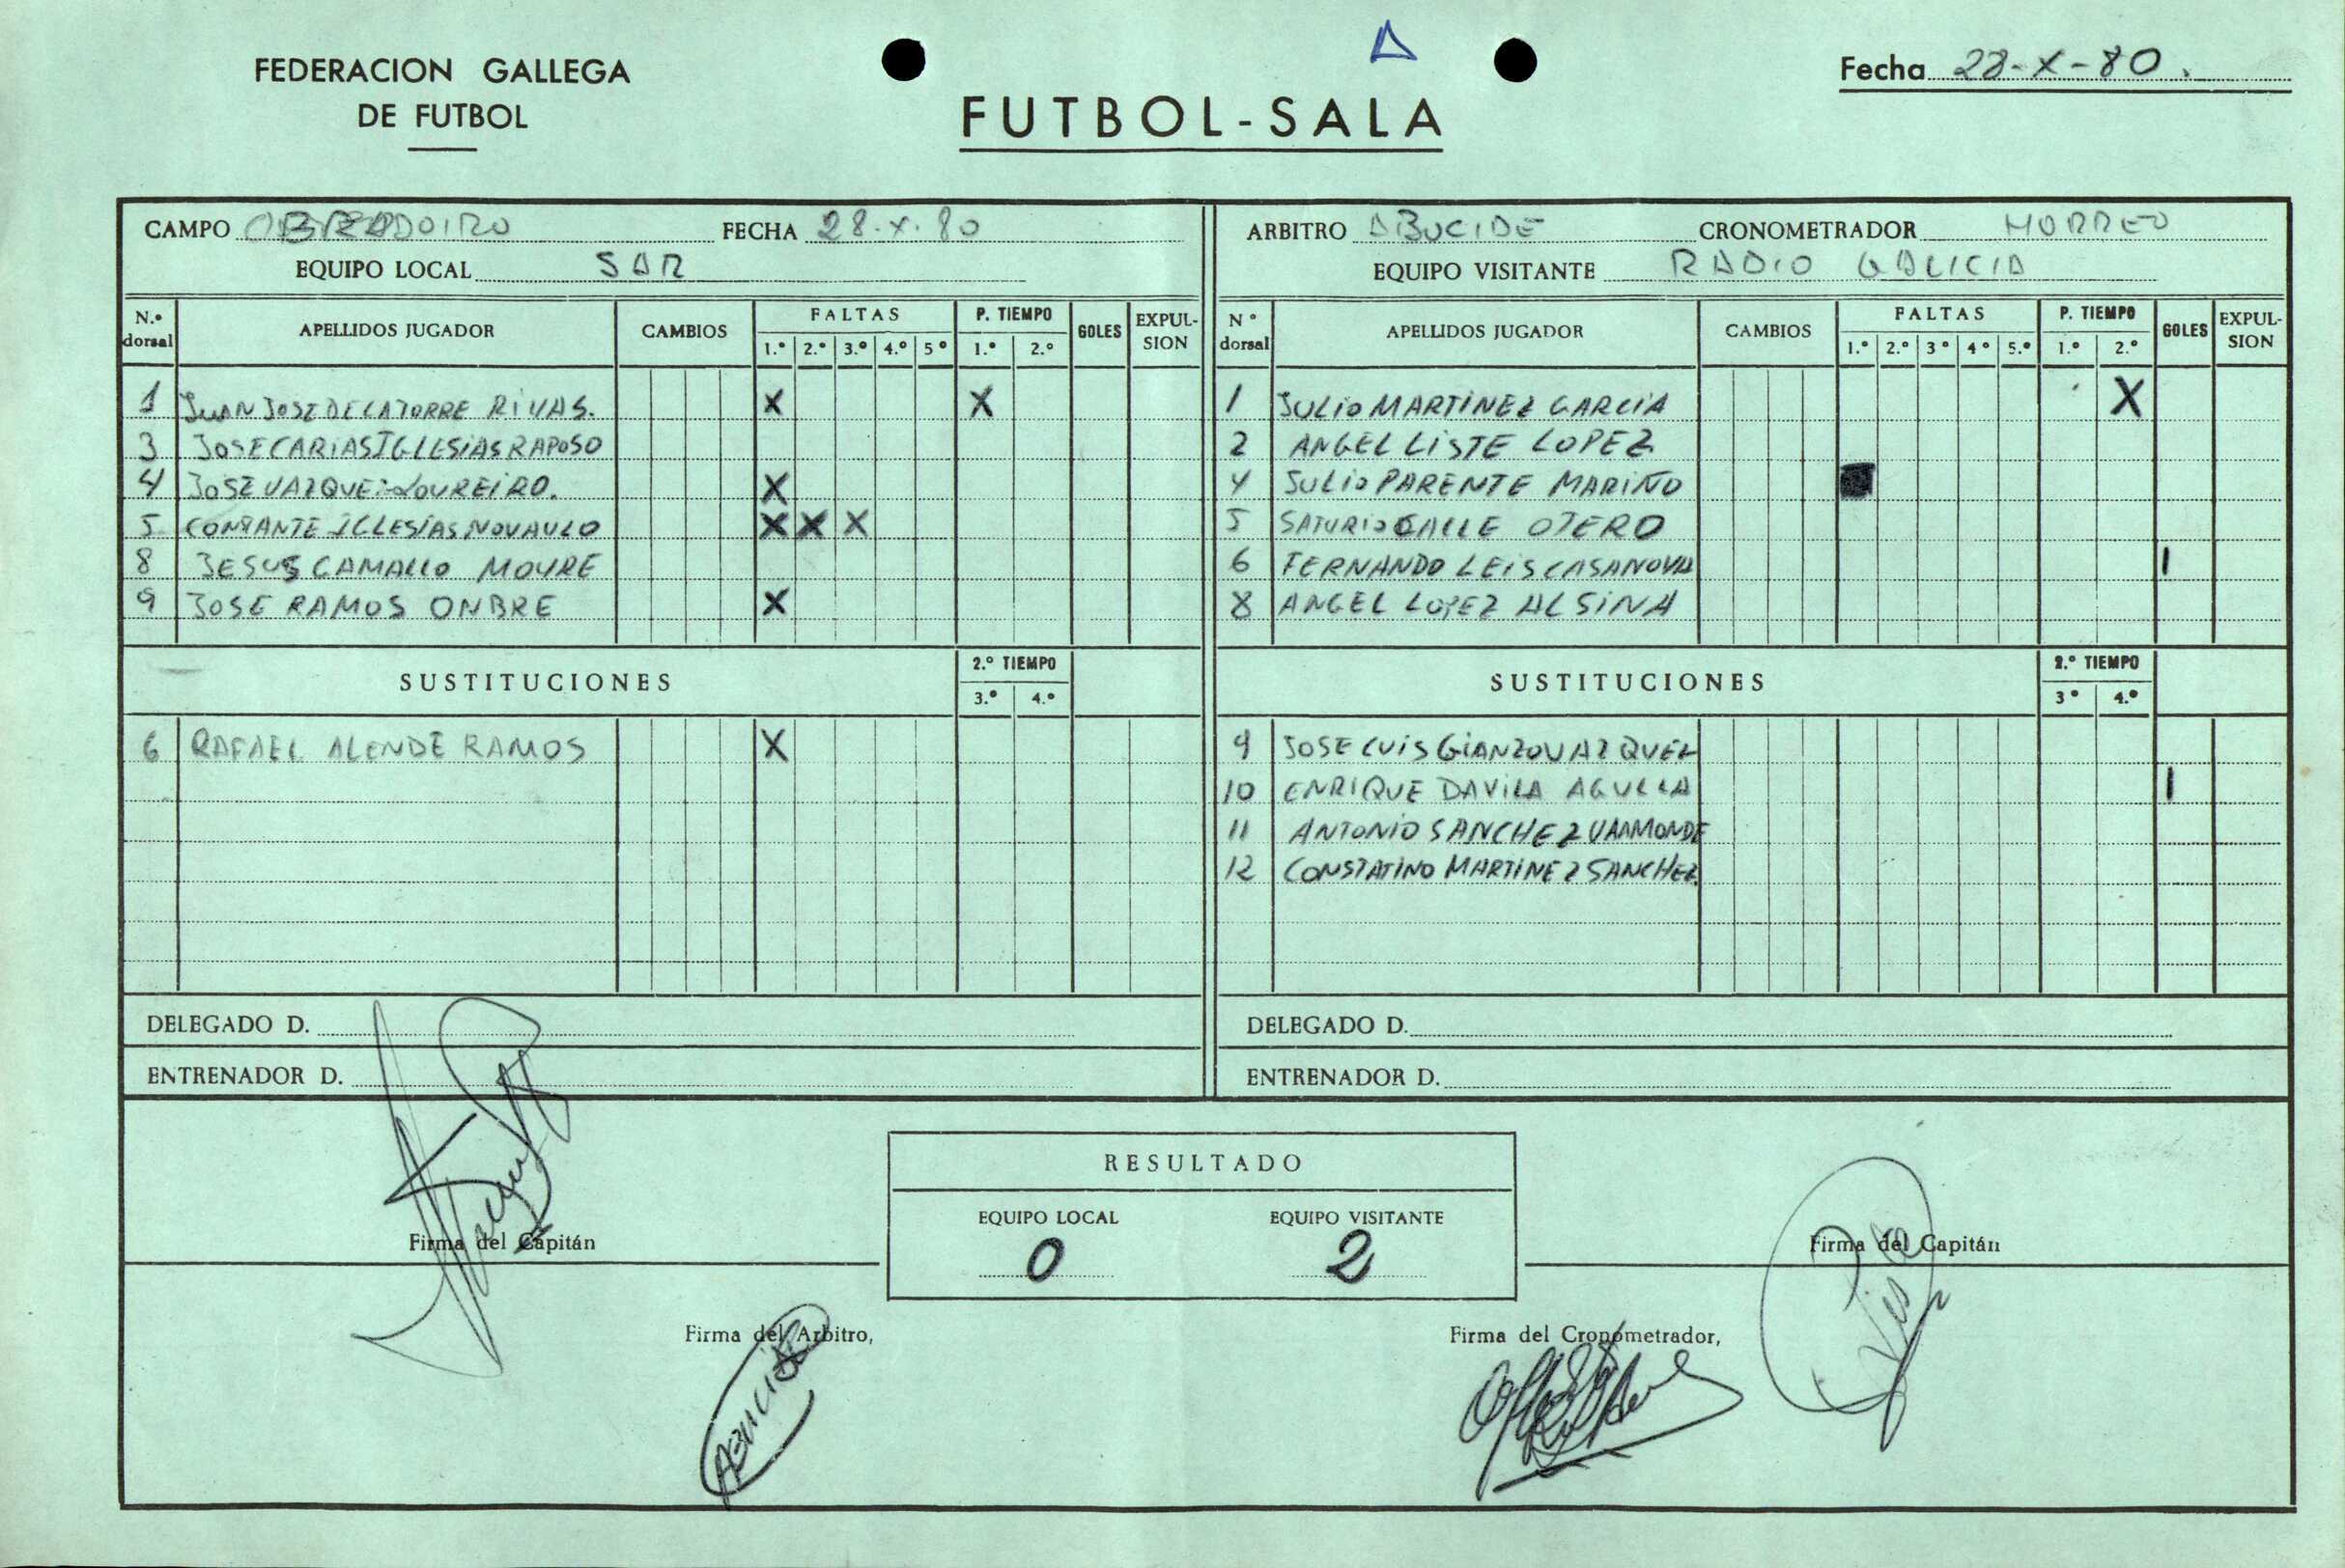 FEDERACION GALLEGA
DE FUTBOL
FUTBOL-SALA
Fecha 28-X-80.
CAMPO OBRADOIRO FECHA 28-X-80
EQUIPO LOCAL SAR
ARBITRO ABUCIDE CRONOMETRADOR HORREO
EQUIPO VISITANTE RADIO GALICIA
N.º dorsal APELLIDOS JUGADOR CAMBIOS FALTAS 1.º 2.º 3.º 4.º 5º P. TIEMPO 1.º 2.º GOLES EXPULSION
1 JUAN JOSE DE LA TORRE RIVAS. X X
3 JOSE CARIAS IGLESIAS RAPOSO
4 JOSE VAZQUEZ LOUREIRO. X
5 CONTANTE IGLESIAS NOVAULO X X X
8 JESUS CAMALLO MOURE
9 JOSE RAMOS ONBRE X
SUSTITUCIONES 2.º TIEMPO 3.º 4.º
6 RAFAEL ALENDE RAMOS X
DELEGADO D.
ENTRENADOR D.
Nº dorsal APELLIDOS JUGADOR CAMBIOS FALTAS 1.º 2.º 3º 4º 5.º P. TIEMPO 1.º 2.º GOLES EXPULSION
1 JULIO MARTINEZ GARCIA X
2 ANGEL LISTE LOPEZ
4 JULIO PARENTE MARIÑO
5 SATURIO CALLE OTERO
6 FERNANDO LEIS CASANOVA 1
8 ANGEL LOPEZ ALSINA
SUSTITUCIONES 2.º TIEMPO 3º 4.º
9 JOSE LUIS GIANZO VAZQUEZ
10 ENRIQUE DAVILA AGULLA 1
11 ANTONIO SANCHEZ VAAMONDE
12 CONSTATINO MARTINEZ SANCHEZ
DELEGADO D.
ENTRENADOR D.
RESULTADO
EQUIPO LOCAL EQUIPO VISITANTE
0 2
Firma del Capitán
Firma del Capitán
Firma del Arbitro,
Firma del Cronometrador,
ABUCIDE